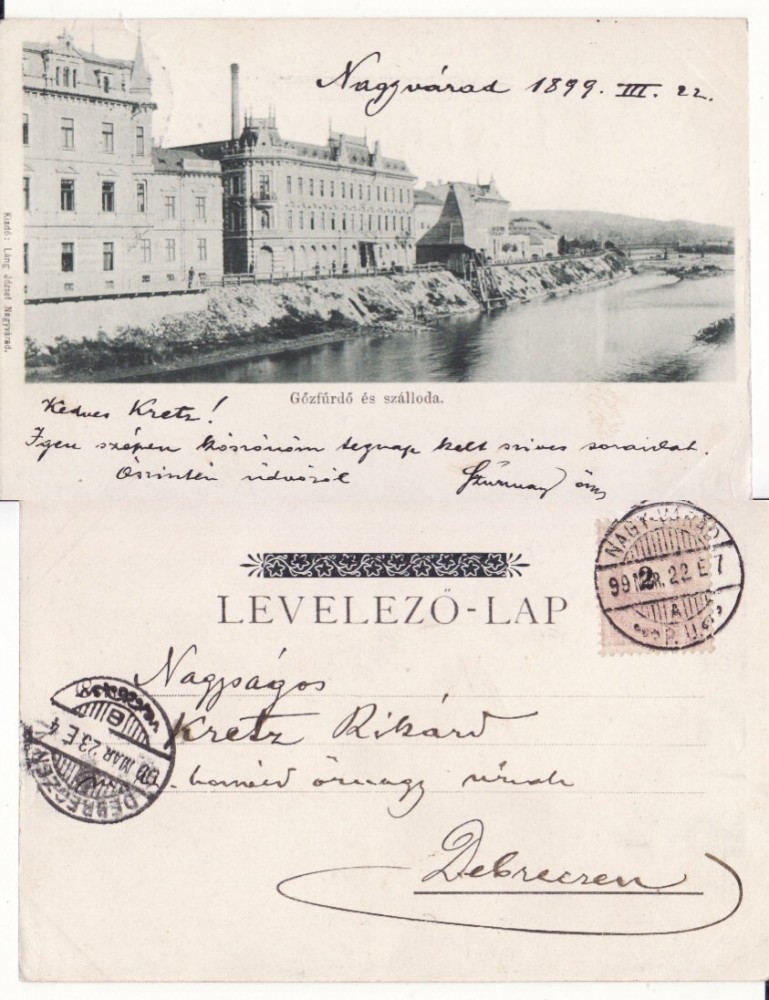 Nagyvárad 1899. III. 22.
Kiadó: Láng József Nagyvárad.
Gőzfürdő és szálloda.
Kedves Kretz!
Igen szépen köszönöm tegnap kelt szives soraidat.
Őszintén üdvözöl
LEVELEZŐ-LAP
NAGY-VÁRAD
99 MÁR. 22 E 7
A
P. U.
2
Nagyságos
Kretz Rikárd
honvéd őrnagy úrnak
Debreczen
DEBRECZEN
MÁR 23 E 4